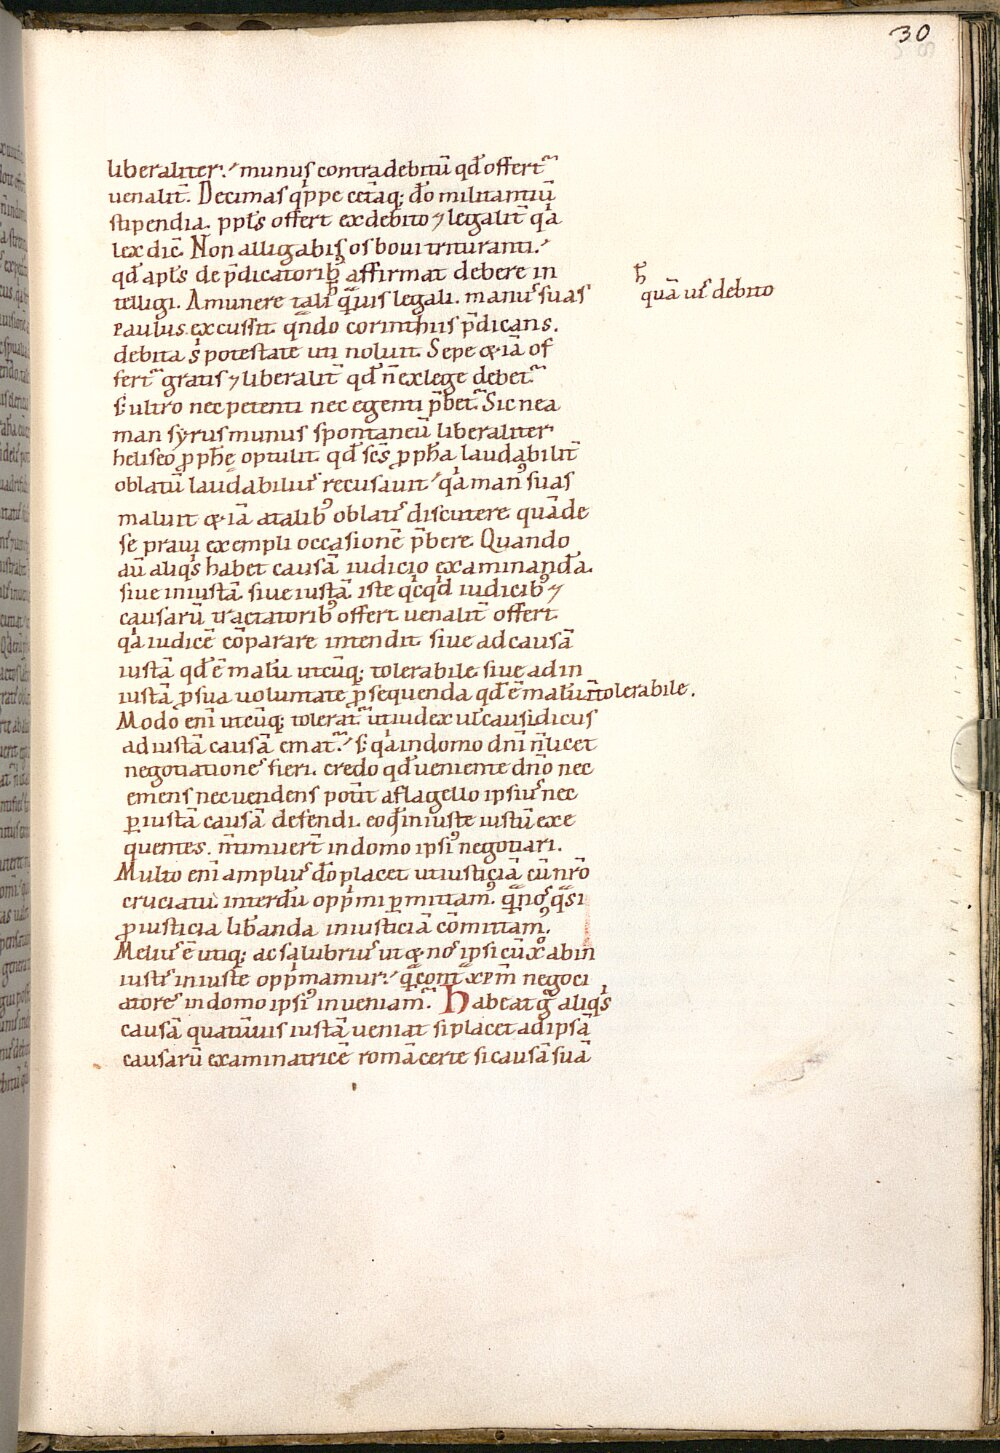 30
liberaliter. munus contra debitū qđ offert᷑
uenalit̄. Decimas q̇ppe cetāq; dō militantiū
stipendia. ppl̄s offert ex debito ⁊ legalit̄ q̇a
lex dic̄. Non alligabis os boui trituranti.
qđ apl̄s de p̄dicatorib; affirmat debere in
telligi. A munere tali q̄uis legali. man᷒ suas
paulus excussit. q̄ndo corinthiis p̄dicans.
debita ṣ potestate uti noluit. Sepe & iā of
fert᷑ gratis ⁊ liberalit̄ qđ n̄ ex lege debet᷑
s; ultro nec petenti nec egenti p̄bet᷑. Sic nea
man syrus munus spontaneū liberaliter
heliseo ꝓph̄ę optulit. qđ sc̄s ꝓph̄a laudabilit̄
oblatū laudabilius recusauit q̇a man᷒ suas
maluit & iā a talib᷒ oblatis discutere quā de
se praui exempli occasionē p̄bere. Quando
aū aliq̇s habet causā iudicio examinandā.
siue iniustā. siue iustā. iste q̇cq̇d iudicib᷒ ⁊
causarū tractatorib᷒ offert uenalit̄ offert.
q̇a iudicē cōparare intendit. siue ad causā
iustā qđ ē malū utcūq; tolerabile. siue ad in
iustā ꝓ sua uoluntate ꝓsequenda qđ ē malū n̄ tolerabile.
Modo eni utcūq; tolerat᷑ ut iudex ul̄ causidicus
ad iustā causā emat᷑. s; q̇a in domo dn̄i n̄ licet
negotiationes fieri. credo qđ ueniente dn̄o nec
emens nec uendens pot̄it a flagello ipsius nec
ꝑ iustā causā defendi. eo qđ iniuste iustū exe
quentes. n̄ timuer̄t in domo ipsi᷒ negotiari.
Multo eni amplius dō placet ut iusticiā cū nr̄o
cruciatu interdū opp̄mi ꝑmittam᷒. q̄ nos q̄si
ꝓ iusticia lib̄anda iniusticiā cōmittam᷒.
Melius ē utiq; ac salubrius ut & nos ipsi cū xo ab in
iustis iniuste opp̄mamur. q̄ cont̄ xp̄m negoci
atores in domo ipsi᷒ inueniam᷑. Habeat g̊ aliq̇s
causā quātūuis iustā ueniat si placet ad ipsā
causarū examinatricē romā certe si causā suā
ħ
quā uis debito